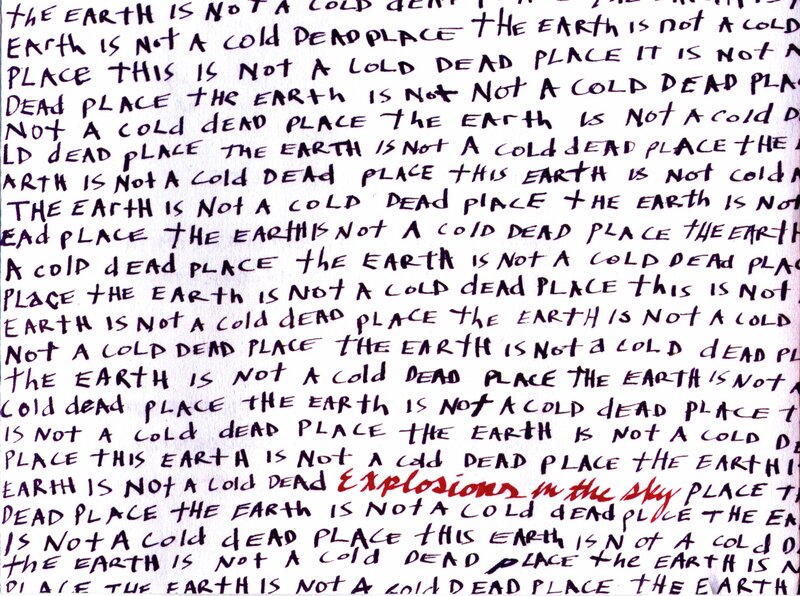 the EARTH IS NOT A COLD dEAd PLACE THE EARTH IS
EARth IS Not A cold DEAD PLACE tHE EARth IS not A COLD
PLACE tHIS IS Not A COLD DEAD PLACE IT IS NOT A
DEAd PLACE tHE EARth IS Not Not A COLD DEAD PLA
Not A cold dEAD PLACE the EARth IS Not A cold D
LD dEAD pLACE THE EARTH IS Not A cold dEAD PLACE tHE
ARTH IS Not A cold DEAd PLACE tHIS EARTH IS Not cold A
THE EARtH IS Not A COLD DEAD plACE tHE EARth IS Not
EAd pLACE THE EARTH IS Not A cold DEAD PLACE tHE EARTH
A cold dEAd PLACE the EARTH IS NOT A COLD DEAd PLAC
PLACE tHE EARth IS Not A COLD dEAd PLACE this IS Not
EARTH IS Not A cold dEAD pLACE the EARTH IS NOT A COLD
Not A COLD DEAD PLACE THE EARTH IS Not a COLD dEAD PL
tHE EARTH IS Not A cold DEAD PLACE THE EARTH IS Not A
COLd dead pLACE tHE EARth IS Not A COLD dEAD PLACE T
IS Not A cold dEAD PLACE tHE EARTH IS NOt A COLD DE
PLACE tHIS EARTH IS Not A cold DEAD PLACE tHE EARTH I
EARTH IS NOT A Cold DEAd Explosions in the sky PLACE TH
DEAD PLACE tHE EARth IS Not A COLd dEAd pLACE THE EA
IS Not A COLD dEAD PLACE tHIS EARth IS Not A cold D
the EARTH IS Not A Cold DEAD PLACE the EARTH IS N
PLACE THE EARTH IS NOT A cold DEAD PLACE tHE EARTH